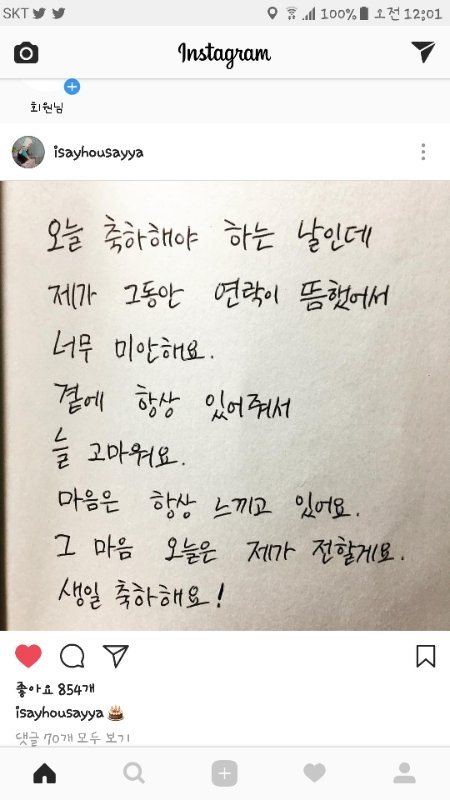 SKT 100% 오전 12:01
Instagram
회원님
isayhousayya
오늘 축하해야 하는 날인데
제가 그동안 연락이 뜸했어서
너무 미안해요.
곁에 항상 있어줘서
늘 고마워요.
마음은 항상 느끼고 있어요.
그 마음 오늘은 제가 전할게요.
생일 축하해요!
좋아요 854개
isayhousayya 🎂
댓글 70개 모두 보기